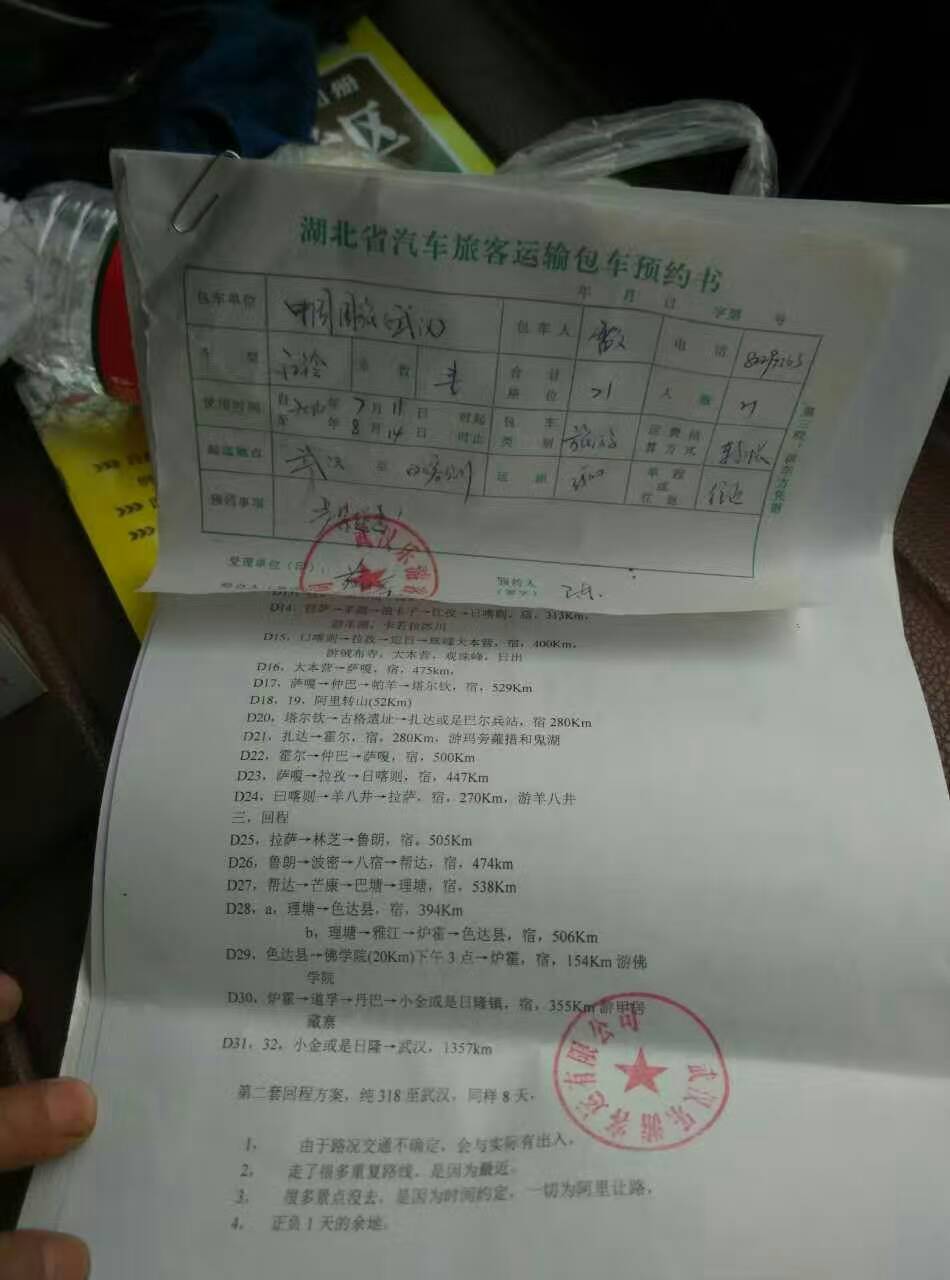 湖北省汽车旅客运输包车预约书
年 月 日 字第 号
包车单位 包车人 电话
车型 合计座位 21 人数 21
使用时间 自 年 7月11日 时起 至 年 8月14日 时止 包车类别 旅游 运费结算方式
起讫地点 武汉 至 运距 单程或往返 往返
预约事项
受理单位(印): 预约人(签字)
第三联:供车方凭据
武汉乐游客
D14, →羊湖→浪卡子→江孜→日喀则,宿,313Km,
游羊湖,卡若拉冰川
D15,日喀则→拉孜→定日→珠峰大本营,宿,400Km,
游绒布寺,大本营,观珠峰,日出
D16,大本营→萨嘎,宿,475km,
D17,萨嘎→仲巴→帕羊→塔尔钦,宿,529Km
D18,19,阿里转山(52Km)
D20,塔尔钦→古格遗址→扎达或是巴尔兵站,宿280Km
D21,扎达→霍尔,宿,280Km,游玛旁雍措和鬼湖
D22,霍尔→仲巴→萨嘎,宿,500Km
D23,萨嘎→拉孜→日喀则,宿,447Km
D24,日喀则→羊八井→拉萨,宿,270Km,游羊八井
三,回程
D25,拉萨→林芝→鲁朗,宿。505Km
D26,鲁朗→波密→八宿→帮达,宿,474km
D27,帮达→芒康→巴塘→理塘,宿,538Km
D28,a,理塘→色达县,宿,394Km
b,理塘→雅江→炉霍→色达县,宿,506Km
D29,色达县→佛学院(20Km)下午3点→炉霍,宿,154Km 游佛
学院
D30,炉霍→道孚→丹巴→小金或是日隆镇,宿,355Km 游甲居
藏寨
D31,32,小金或是日隆→武汉,1357km
武汉乐游客运有限公司
第二套回程方案,纯318至武汉,同样8天,
1, 由于路况交通不确定,会与实际有出入,
2, 走了很多重复路线,是因为最近,
3, 很多景点没去,是因为时间约定,一切为阿里让路,
4, 正负1天的余地,